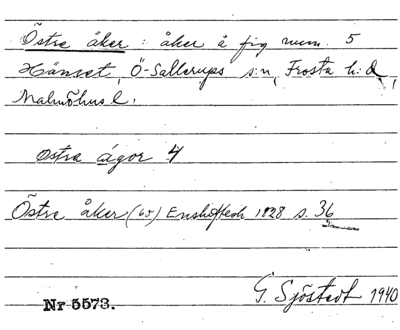 Östra åker : åker å fig num. 5
Hånset, Ö-Sallerups s:n, Frosta h:d,
Malmöhus l.
Ostra ågor 4
Östre åker (65) Enskiftesh 1828 s. 36
G. Sjöstedt 1940
Nr 5573.